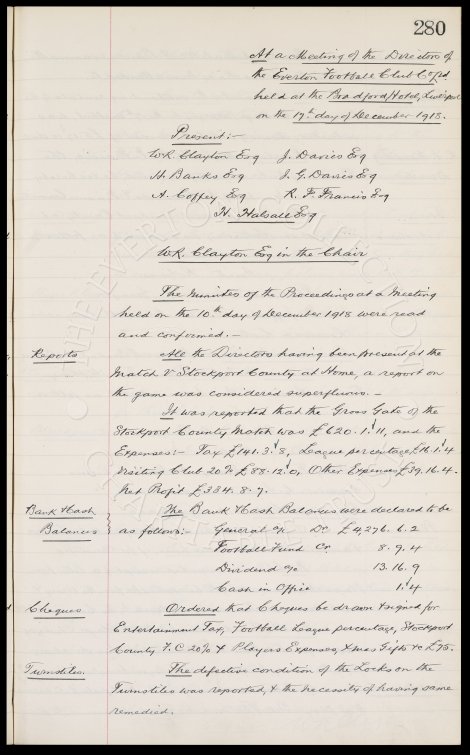 280
At a Meeting of the Directors of
the Everton Football Club Co Ltd
held at the Bradford Hotel, Liverpool
on the 17th day of December 1918.
Present :-
W.R. Clayton Esq J. Davies Esq
H. Banks Esq J. G. Davies Esq
A. Coffey Esq R. F. Francis Esq
H. Halsall Esq
W.R. Clayton Esq in the Chair
The Minutes of the Proceedings at a Meeting
held on the 10th day of December 1918 were read
and confirmed. -
Reports All the Directors having been present at the
Match V Stockport County at Home, a report on
the game was considered superfluous. -
It was reported that the Gross Gate of the
Stockport County Match was £620. 1. 11, and the
Expenses:- Tax £141. 3. 8, League percentage £16. 1. 4
Visiting Club 20% £88. 12. 0, Other Expenses £39. 16. 4.
Net Profit £334. 8. 7.
Bank & Cash The Bank & Cash Balances were declared to be
Balances as follows:- General a/c Dr £4,276. 6. 2
Football Fund Cr 8. 9. 4
Dividend a/c 13. 16. 9
Cash in Office 1. 4
Cheques Ordered that Cheques be drawn & signed for
Entertainment Tax, Football League percentage, Stockport
County F.C 20% & Players Expenses, Xmas Gifts &c £75.
Turnstiles. The defective condition of the Locks on the
Turnstiles was reported, & the necessity of having same
remedied.
THE EVERTON COLLECTION